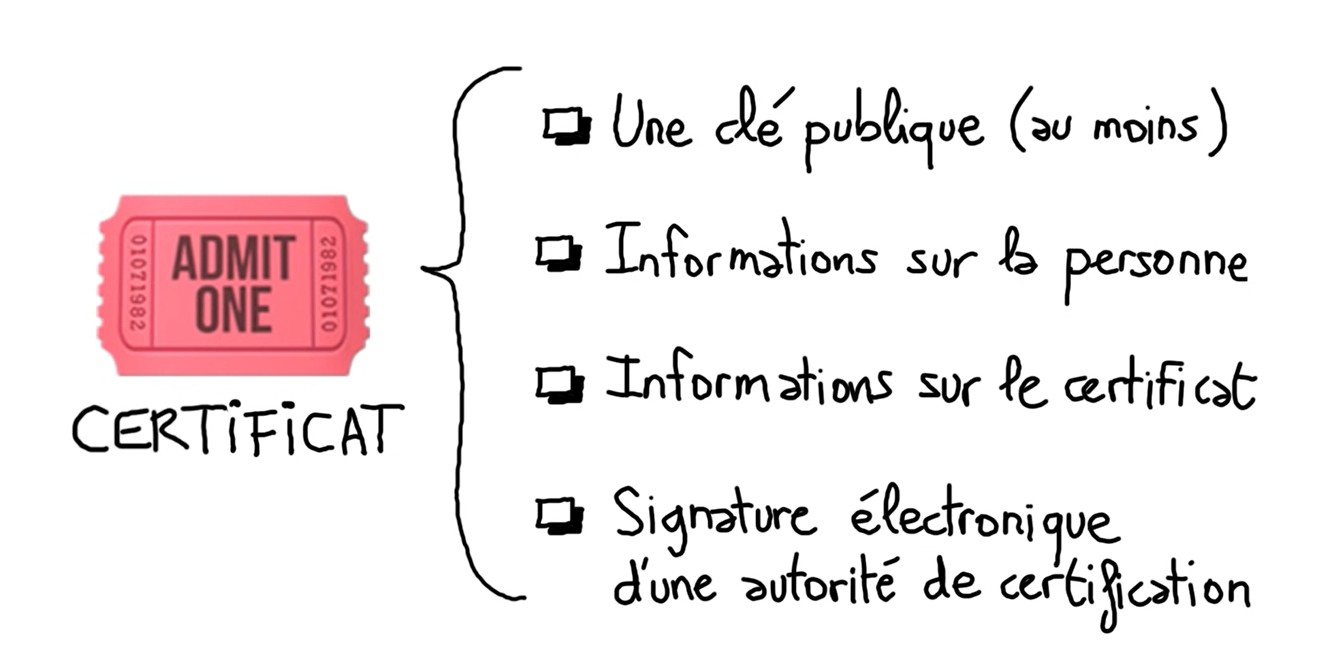 01071982
ADMIT
ONE
01071982
CERTiFiCAT
Une clé publique (au moins)
Informations sur la personne
Informations sur le certificat
Signature électronique
d'une autorité de certification